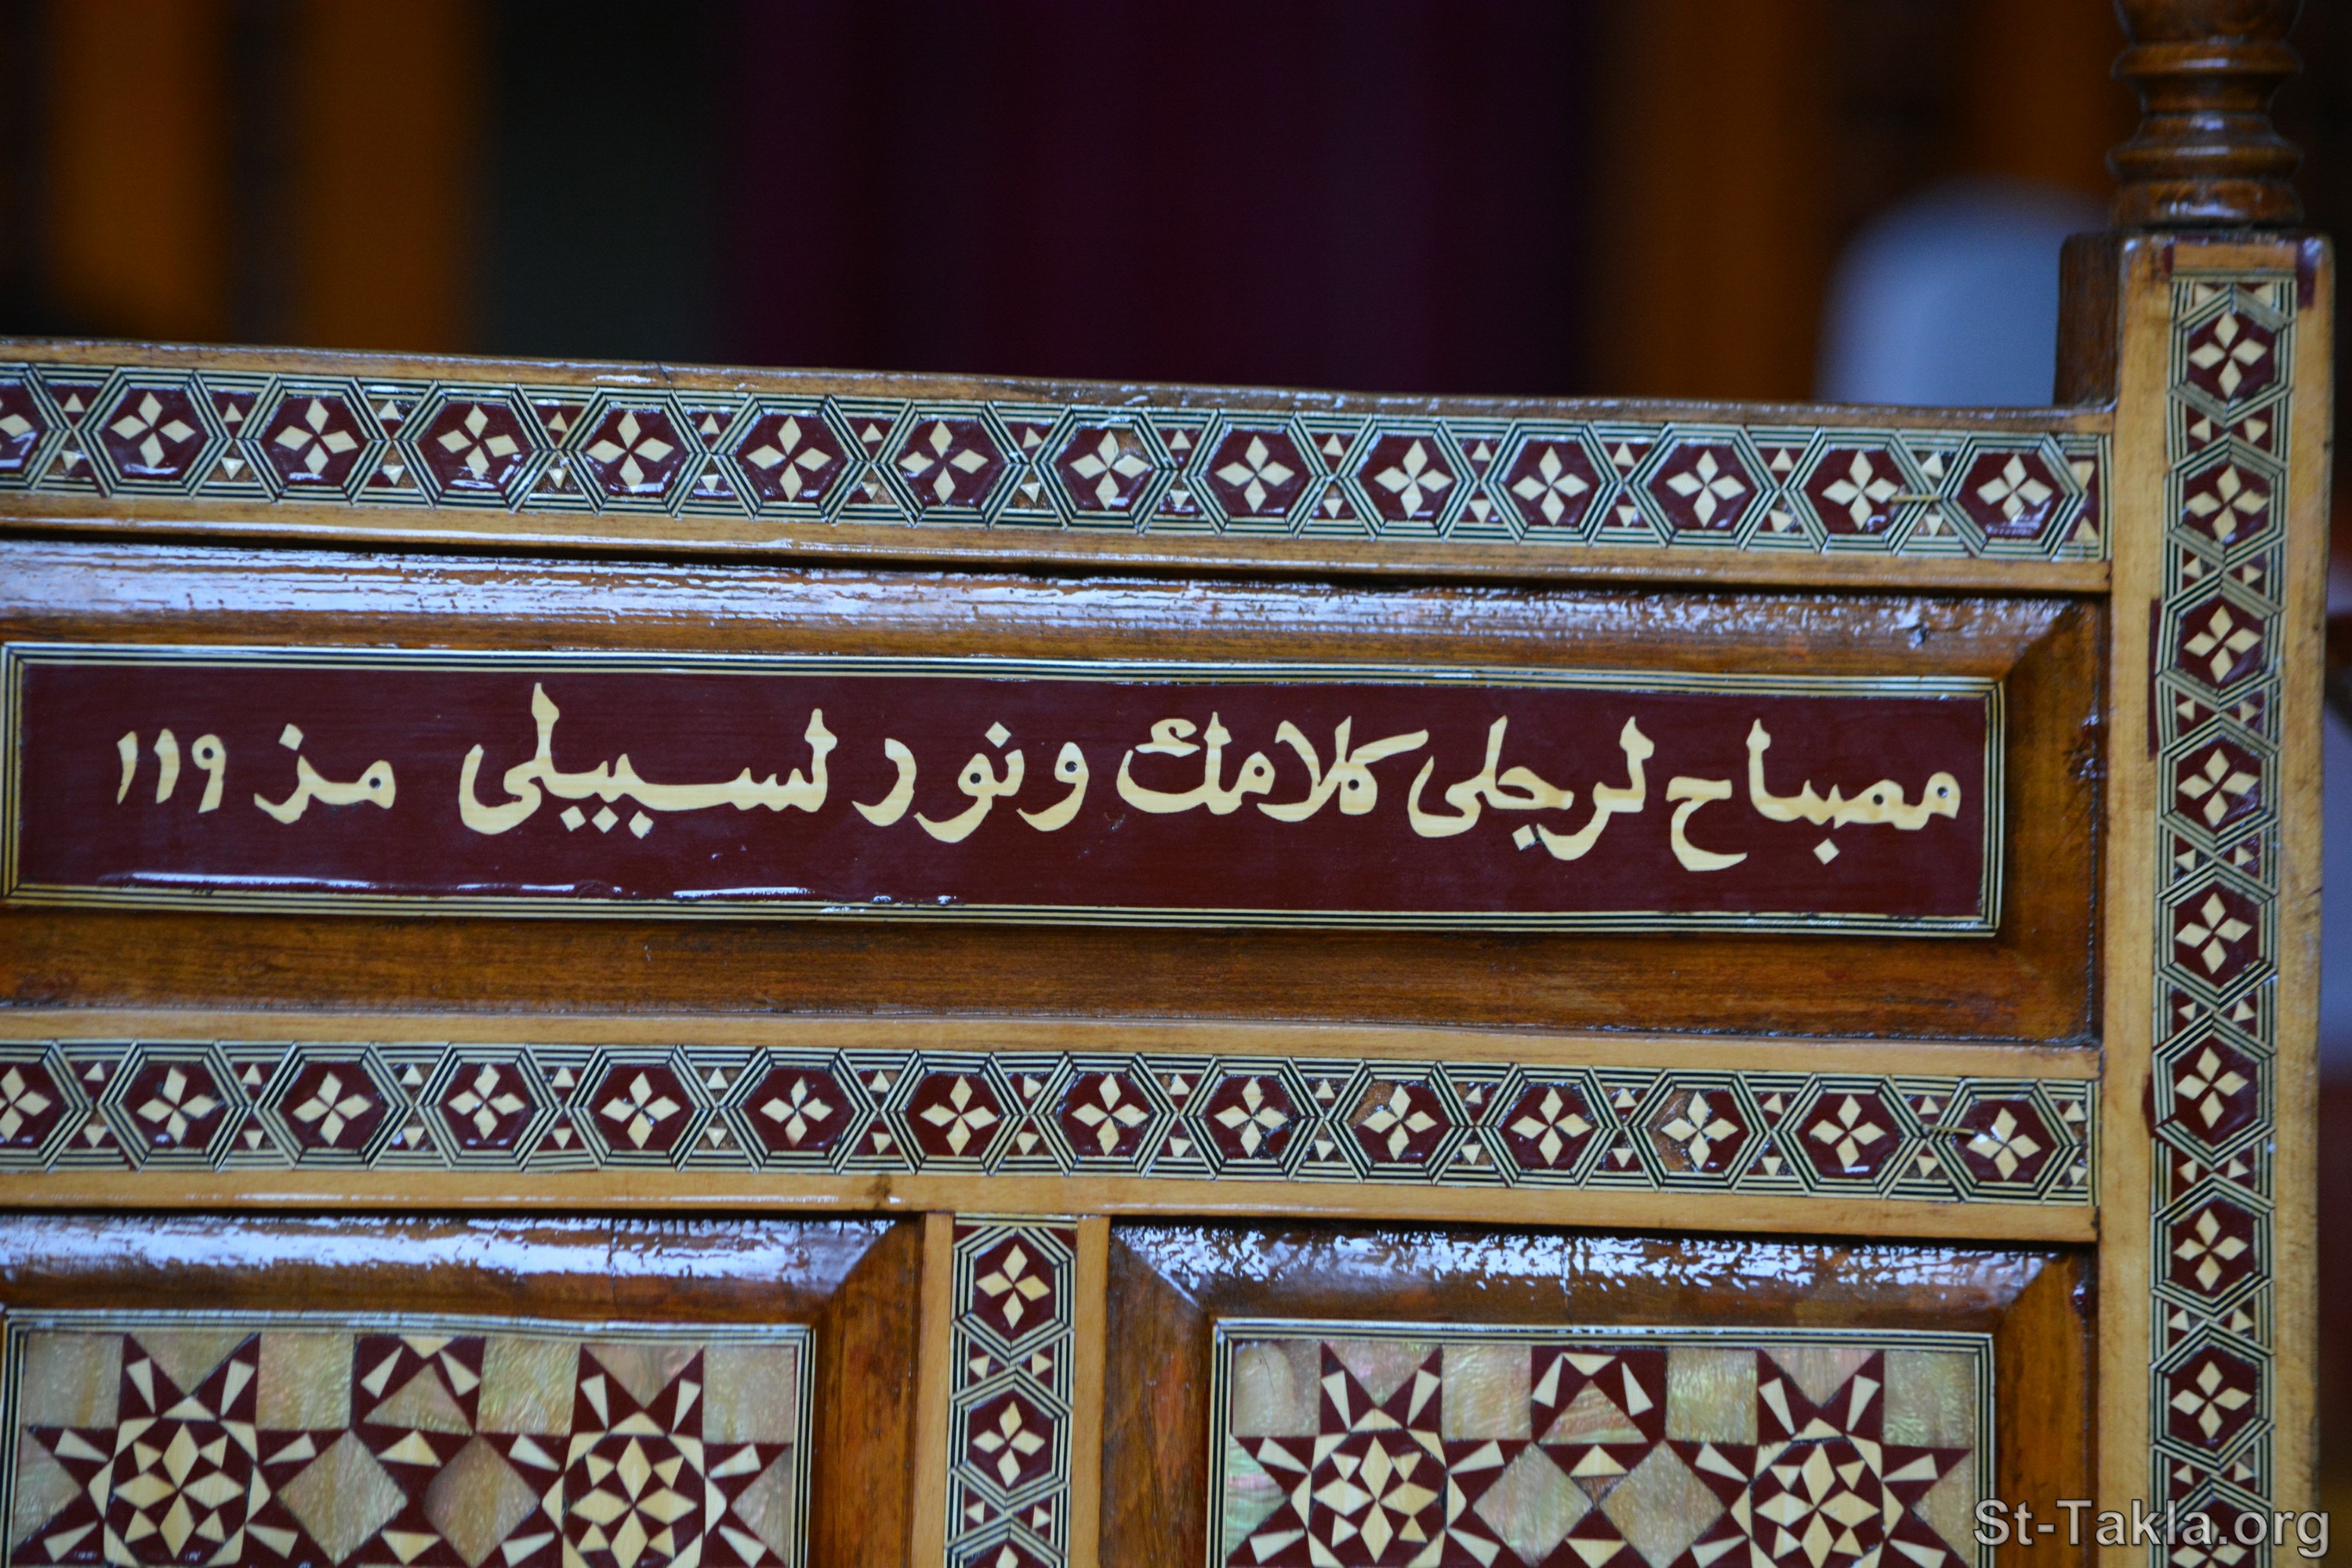 مصباح لرجلى كلامك ونور لسبيلى مز ١١٩
St-Takla.org